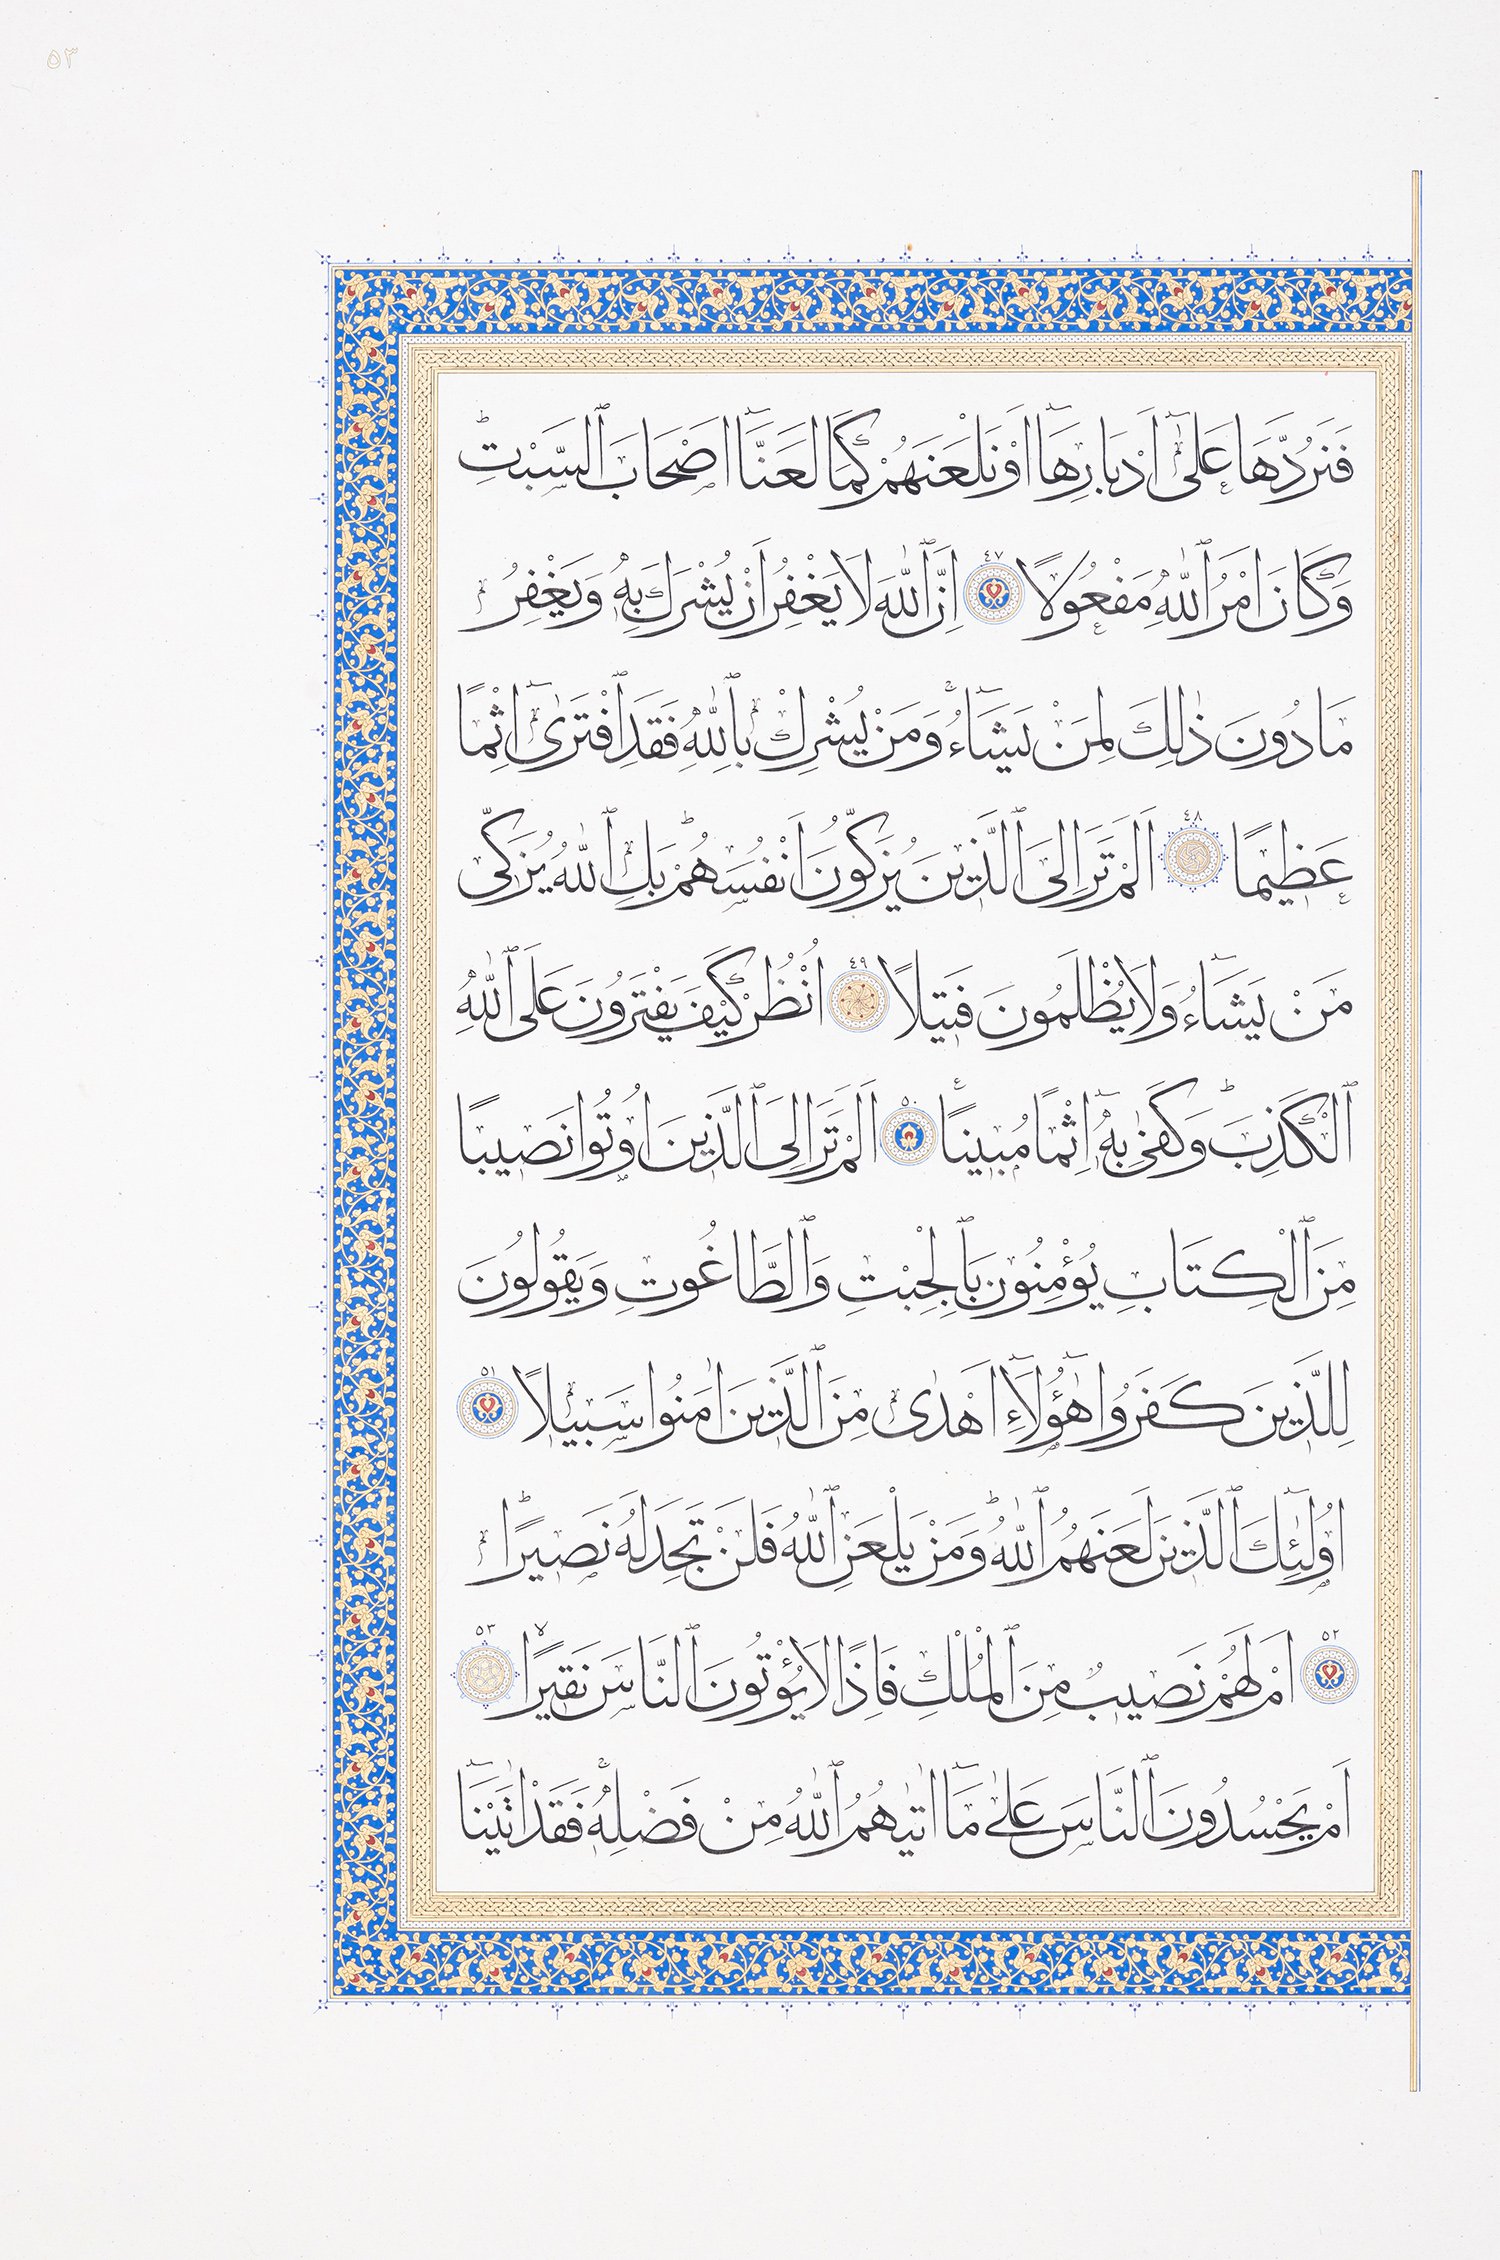 ٥٣
فَنَرُدَّهَا عَلٰٓى اَدْبَارِهَٓا اَوْ نَلْعَنَهُمْ كَمَا لَعَنَّٓا اَصْحَابَ ٱلسَّبْتِۜ
وَكَانَ اَمْرُ ٱللّٰهِ مَفْعُولًا ٤٧ اِنَّ ٱللّٰهَ لَا يَغْفِرُ اَنْ يُشْرَكَ بِهٖ وَيَغْفِرُ
مَا دُونَ ذٰلِكَ لِمَنْ يَشَٓاءُۚ وَمَنْ يُشْرِكْ بِٱللّٰهِ فَقَدِ ٱفْتَرٰٓى اِثْمًا
عَظِيمًا ٤٨ اَلَمْ تَرَ اِلَى ٱلَّذِينَ يُزَكُّونَ اَنْفُسَهُمْۜ بَلِ ٱللّٰهُ يُزَكِّى
مَنْ يَشَٓاءُ وَلَا يُظْلَمُونَ فَتِيلًا ٤٩ اُنْظُرْ كَيْفَ يَفْتَرُونَ عَلَى ٱللّٰهِ
ٱلْكَذِبَۜ وَكَفٰى بِهٖٓ اِثْمًا مُبِينًا ٥٠ اَلَمْ تَرَ اِلَى ٱلَّذِينَ اُوتُوا نَصِيبًا
مِنَ ٱلْكِتَابِ يُؤْمِنُونَ بِٱلْجِبْتِ وَٱلطَّاغُوتِ وَيَقُولُونَ
لِلَّذِينَ كَفَرُوا هٰٓؤُ۬لَٓاءِ اَهْدٰى مِنَ ٱلَّذِينَ اٰمَنُوا سَبِيلًا ٥١
اُو۬لٰٓئِكَ ٱلَّذِينَ لَعَنَهُمُ ٱللّٰهُۜ وَمَنْ يَلْعَنِ ٱللّٰهُ فَلَنْ تَجِدَ لَهُ نَصِيرًاۜ
٥٢ اَمْ لَهُمْ نَصِيبٌ مِنَ ٱلْمُلْكِ فَاِذًا لَا يُؤْتُونَ ٱلنَّاسَ نَقِيرًاۙ ٥٣
اَمْ يَحْسُدُونَ ٱلنَّاسَ عَلٰى مَٓا اٰتٰيهُمُ ٱللّٰهُ مِنْ فَضْلِهٖۚ فَقَدْ اٰتَيْنَٓا